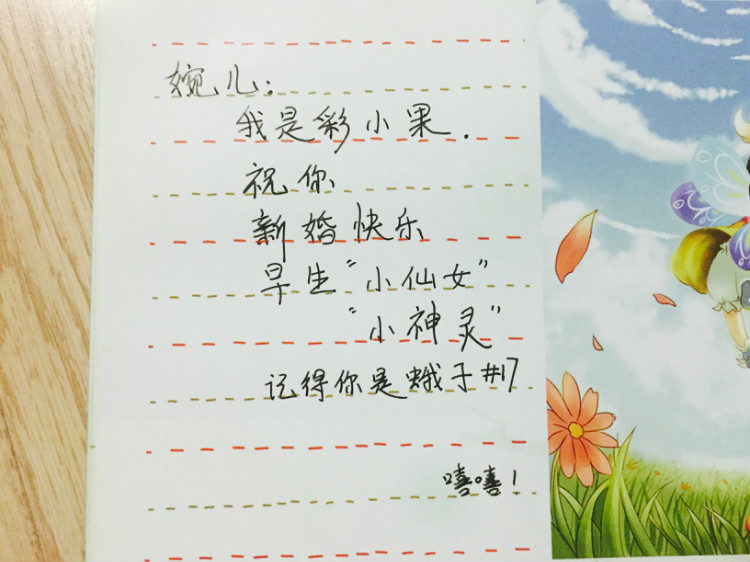 婉儿：
我是彩小果.
祝你
新婚快乐
早生“小仙女”
“小神灵”
记得你是蛾子#17
嘻嘻！